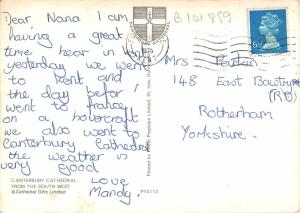 Dear Nana I am
having a great
time hear in Kent
yesterday we went
to Kent and
the day before
went to france
on a hovercraft
we also went to
Canterbury Cathedral
the weather is
very good
love
Mandy.
CANTERBURY CATHEDRAL
FROM THE SOUTH WEST
© Cathedral Gifts Limited
PT5112
B 101 859
Mrs Parkin
148 East Bawtry
(RD)
Rotherham
Yorkshire.